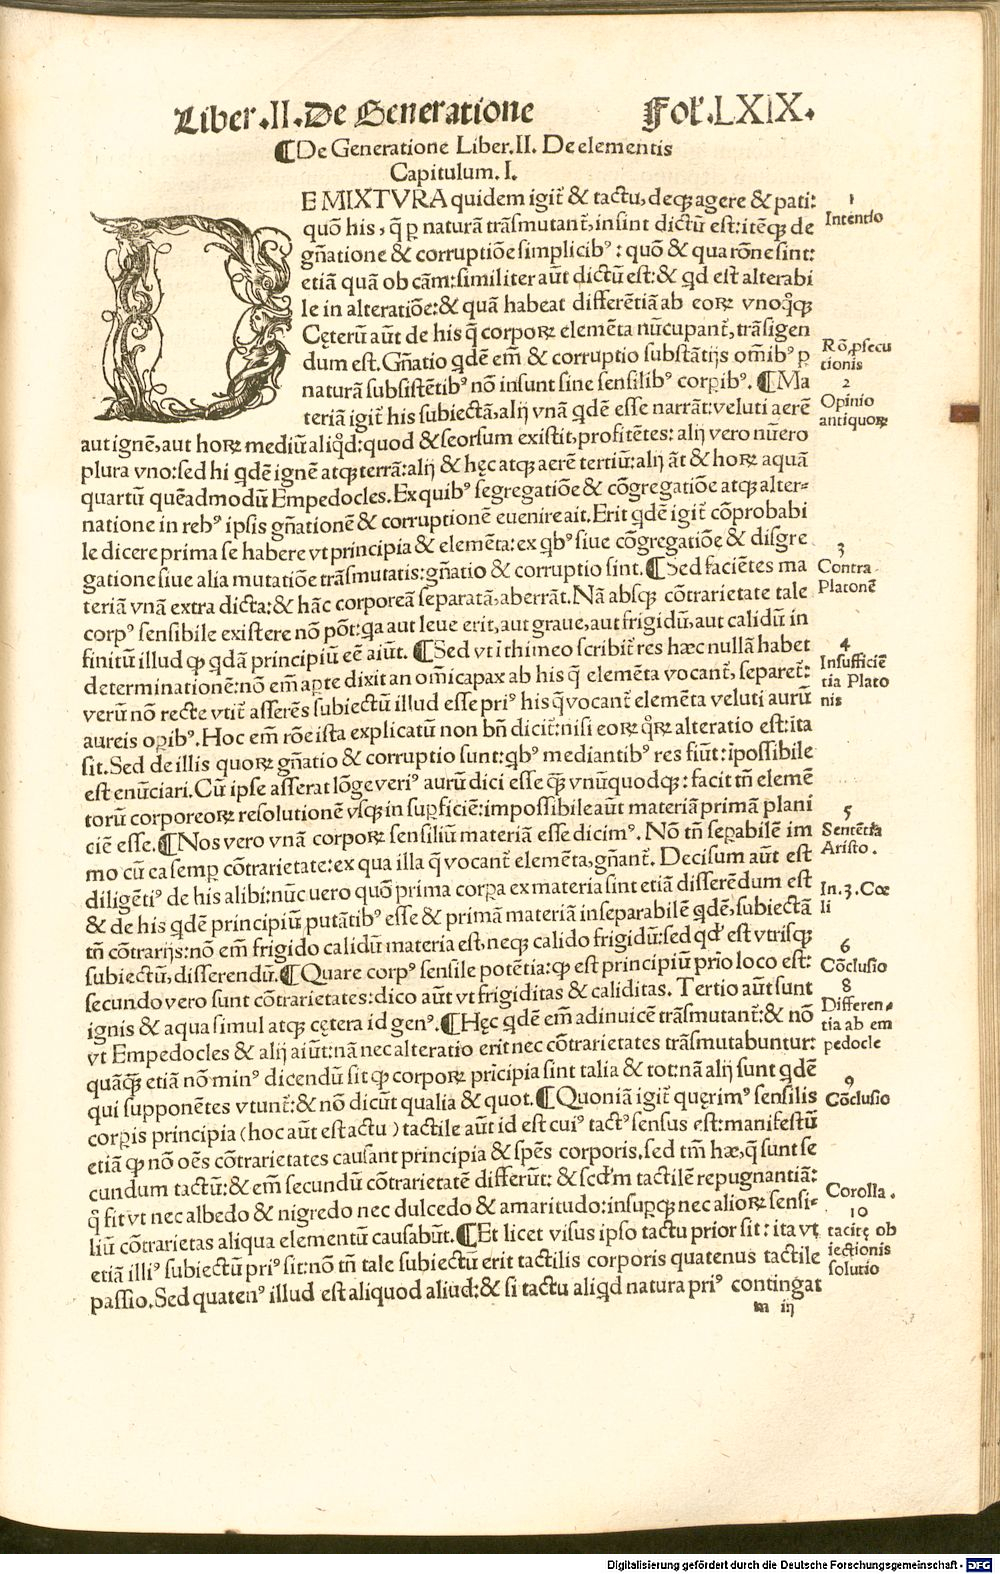 Liber .II. De Generatione Fol. LXIX.
¶De Generatione Liber. II. De elementis
Capitulum. I.
DE MIXTVRA quidem igit̃ & tactu, deqꝫ agere & pati:
quõ his, q̃ ꝑ naturã trãsmutant̃, insint dictũ est: itẽqꝫ de
gñatione & corruptiõe simplicibꝰ: quõ & qua rõne sint:
etiã quã ob cãm: similiter aũt dictũ est: & qd est alterabi
le in alteratiõe: & quã habeat differẽtiã ab eoꝝ vnoq̊qꝫ
Cęterũ aũt de his q̃ corpoꝝ elemẽta nũcupant̃, trãsigen
dum est. Gñatio qdẽ em̃ & corruptio substãtijs om̃ibꝰ ꝑ
naturã subsistẽtibꝰ nõ insunt sine sensilibꝰ corꝑibꝰ. ¶Ma
teriã igit̃ his subiectã, alij vnã qdẽ esse narrãt: veluti aerẽ
aut ignẽ, aut hoꝝ mediũ aliq̊d: quod & seorsum existit, profitẽtes: alij vero nũero
plura vno: sed hi qdẽ ignẽ atqꝫ terrã: alij & hęc atqꝫ aerẽ tertiũ: alij ãt & hoꝝ aquã
quartũ quẽadmodũ Empedocles. Ex quibꝰ segregatiõe & cõgregatiõe atqꝫ alter-
natione in rebꝰ ipsis gñationẽ & corruptionẽ euenire ait. Erit qdẽ igit̃ cõprobabi
le dicere prima se habere vt principia & elemẽta: ex qbꝰ siue cõgregatiõe & disgre
gatione siue alia mutatiõe trãsmutatis: gñatio & corruptio sint. ¶Sed faciẽtes ma
teriã vnã extra dicta: & hãc corporeã separatã, aberrãt. Nã absqꝫ cõtrarietate tale
corpꝰ sensibile existere nõ põt: qa aut leue erit, aut graue, aut frigidũ, aut calidũ in
finitũ illud ꝙ qdã principiũ eẽ aiũt. ¶Sed vt ĩ thimeo scribit̃ res hæc nullã habet
determinationẽ: nõ em̃ aꝑte dixit an om̃icapax ab his q̃ elemẽta vocant̃, separet̃:
verũ nõ recte vtit̃ asserẽs subiectũ illud esse priꝰ his q̃ vocant̃ elemẽta veluti aurũ
aureis oꝑibꝰ. Hoc em̃ rõe ista explicatũ non bñ dicit̃: nisi eoꝝ q̊ꝝ alteratio est: ita
sit. Sed de illis quoꝝ gñatio & corruptio sunt: qbꝰ mediantibꝰ res fiũt: ĩpossibile
est enũciari. Cũ ipse asserat lõge veriꝰ aurũ dici esse qꝫ vnũquodqꝫ: facit tñ elemẽ
torũ corporeoꝝ resolutionẽ vsqꝫ in suꝑficiẽ: impossibile aũt materiã primã plani
ciẽ esse. ¶Nos vero vnã corpoꝝ sensiliũ materiã esse dicimꝰ. Nõ tñ seꝑabilẽ im
mo cũ ea semꝑ cõtrarietate: ex qua illa q̃ vocant̃ elemẽta, gñant̃. Decisum aũt est
diligẽtiꝰ de his alibi: nũc vero quõ prima corꝑa ex materia sint etiã differẽdum est
& de his qdẽ principiũ putãtibꝰ esse & primã materiã inseparabilẽ qdẽ, subiectã
tñ cõtrarijs: nõ em̃ frigido calidũ materia est, neqꝫ calido frigidũ: sed qd est vtrisqꝫ
subiectũ, disserendũ. ¶Quare corpꝰ sensile potẽtia: ꝙ est principiũ prĩo loco est:
secundo vero sunt cõtrarietates: dico aũt vt frigiditas & caliditas. Tertio aũt sunt
ignis & aqua simul atqꝫ cętera id genꝰ. ¶Hęc qdẽ em̃ adinuicẽ trãsmutant̃: & nõ
vt Empedocles & alij aiũt: nã nec alteratio erit nec cõtrarietates trãsmutabuntur:
quãqꝫ etiã nõ minꝰ dicendũ sit ꝙ corpoꝝ prĩcipia sint talia & tot: nã alij sunt qdẽ
qui supponẽtes vtunt̃: & nõ dicũt qualia & quot. ¶Quoniã igit̃ quęrimꝰ sensilis
corꝑis principia (hoc aũt est actu) tactile aũt id est cuiꝰ tactꝰ sensus est: manifestũ
etiã ꝙ nõ oẽs cõtrarietates causant principia & spẽs corporis, sed tm̃ hæ, q̃ sunt se
cundum tactũ: & em̃ secundũ cõtrarietatẽ differũt: & scdm tactilẽ repugnantiã:
q̃ fit vt nec albedo & nigredo nec dulcedo & amaritudo: insuꝑqꝫ nec alioꝝ sensi-
liũ cõtrarietas aliqua elementũ causabũt. ¶Et licet visus ipso tactu prior sit: ita vt
etiã illiꝰ subiectũ priꝰ sit: nõ tñ tale subiectũ erit tactilis corporis quatenus tactile
passio. Sed quatenꝰ illud est aliquod aliud: & si tactu aliqd natura priꝰ contingat
m iij
1
Intentio
Rõ ꝓsecu
tionis
2
Opinio
antiquoꝝ
3
Contra
Platonẽ
4
Insufficiẽ
tia Plato
nis
5
Sentẽtia
Aristo.
In .3. Coe
li
6
Cõclusio
8
Differen-
tia ab em
pedocle
9
Cõclusio
Corolla.
10
tacitę ob
iectionis
solutio
Digitalisierung gefördert durch die Deutsche Forschungsgemeinschaft - DFG